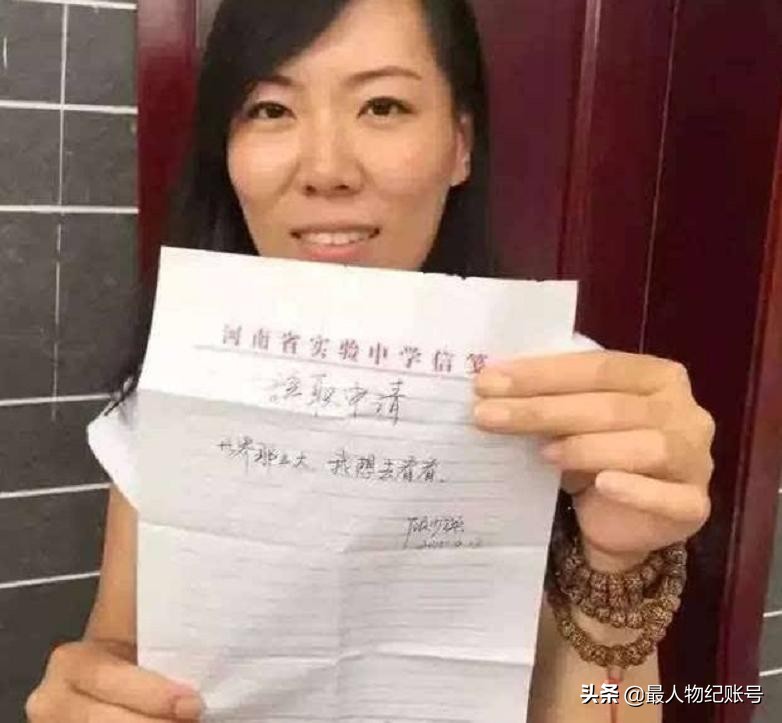 河南省实验中学信笺
辞职申请
世界那么大，我想去看看。
顾少强
头条 @最人物纪账号